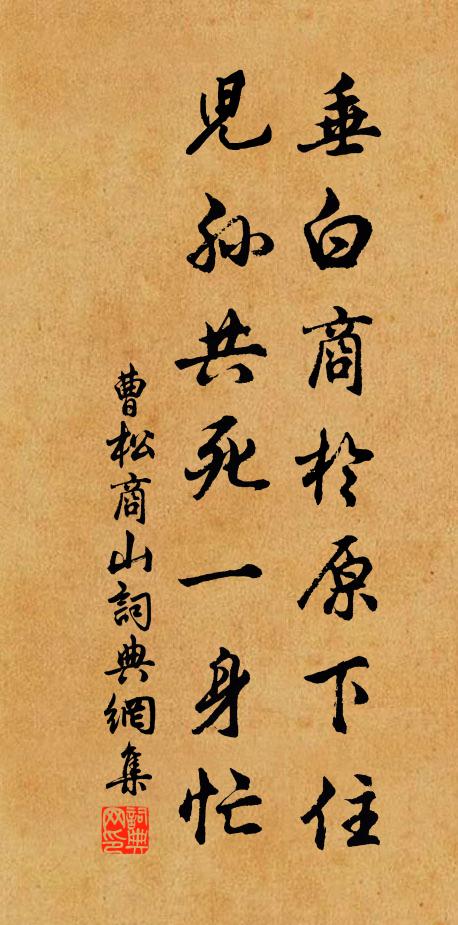 垂白商於原下住
兒孫共死一身忙
曹松商山詞典網集
詞典網印